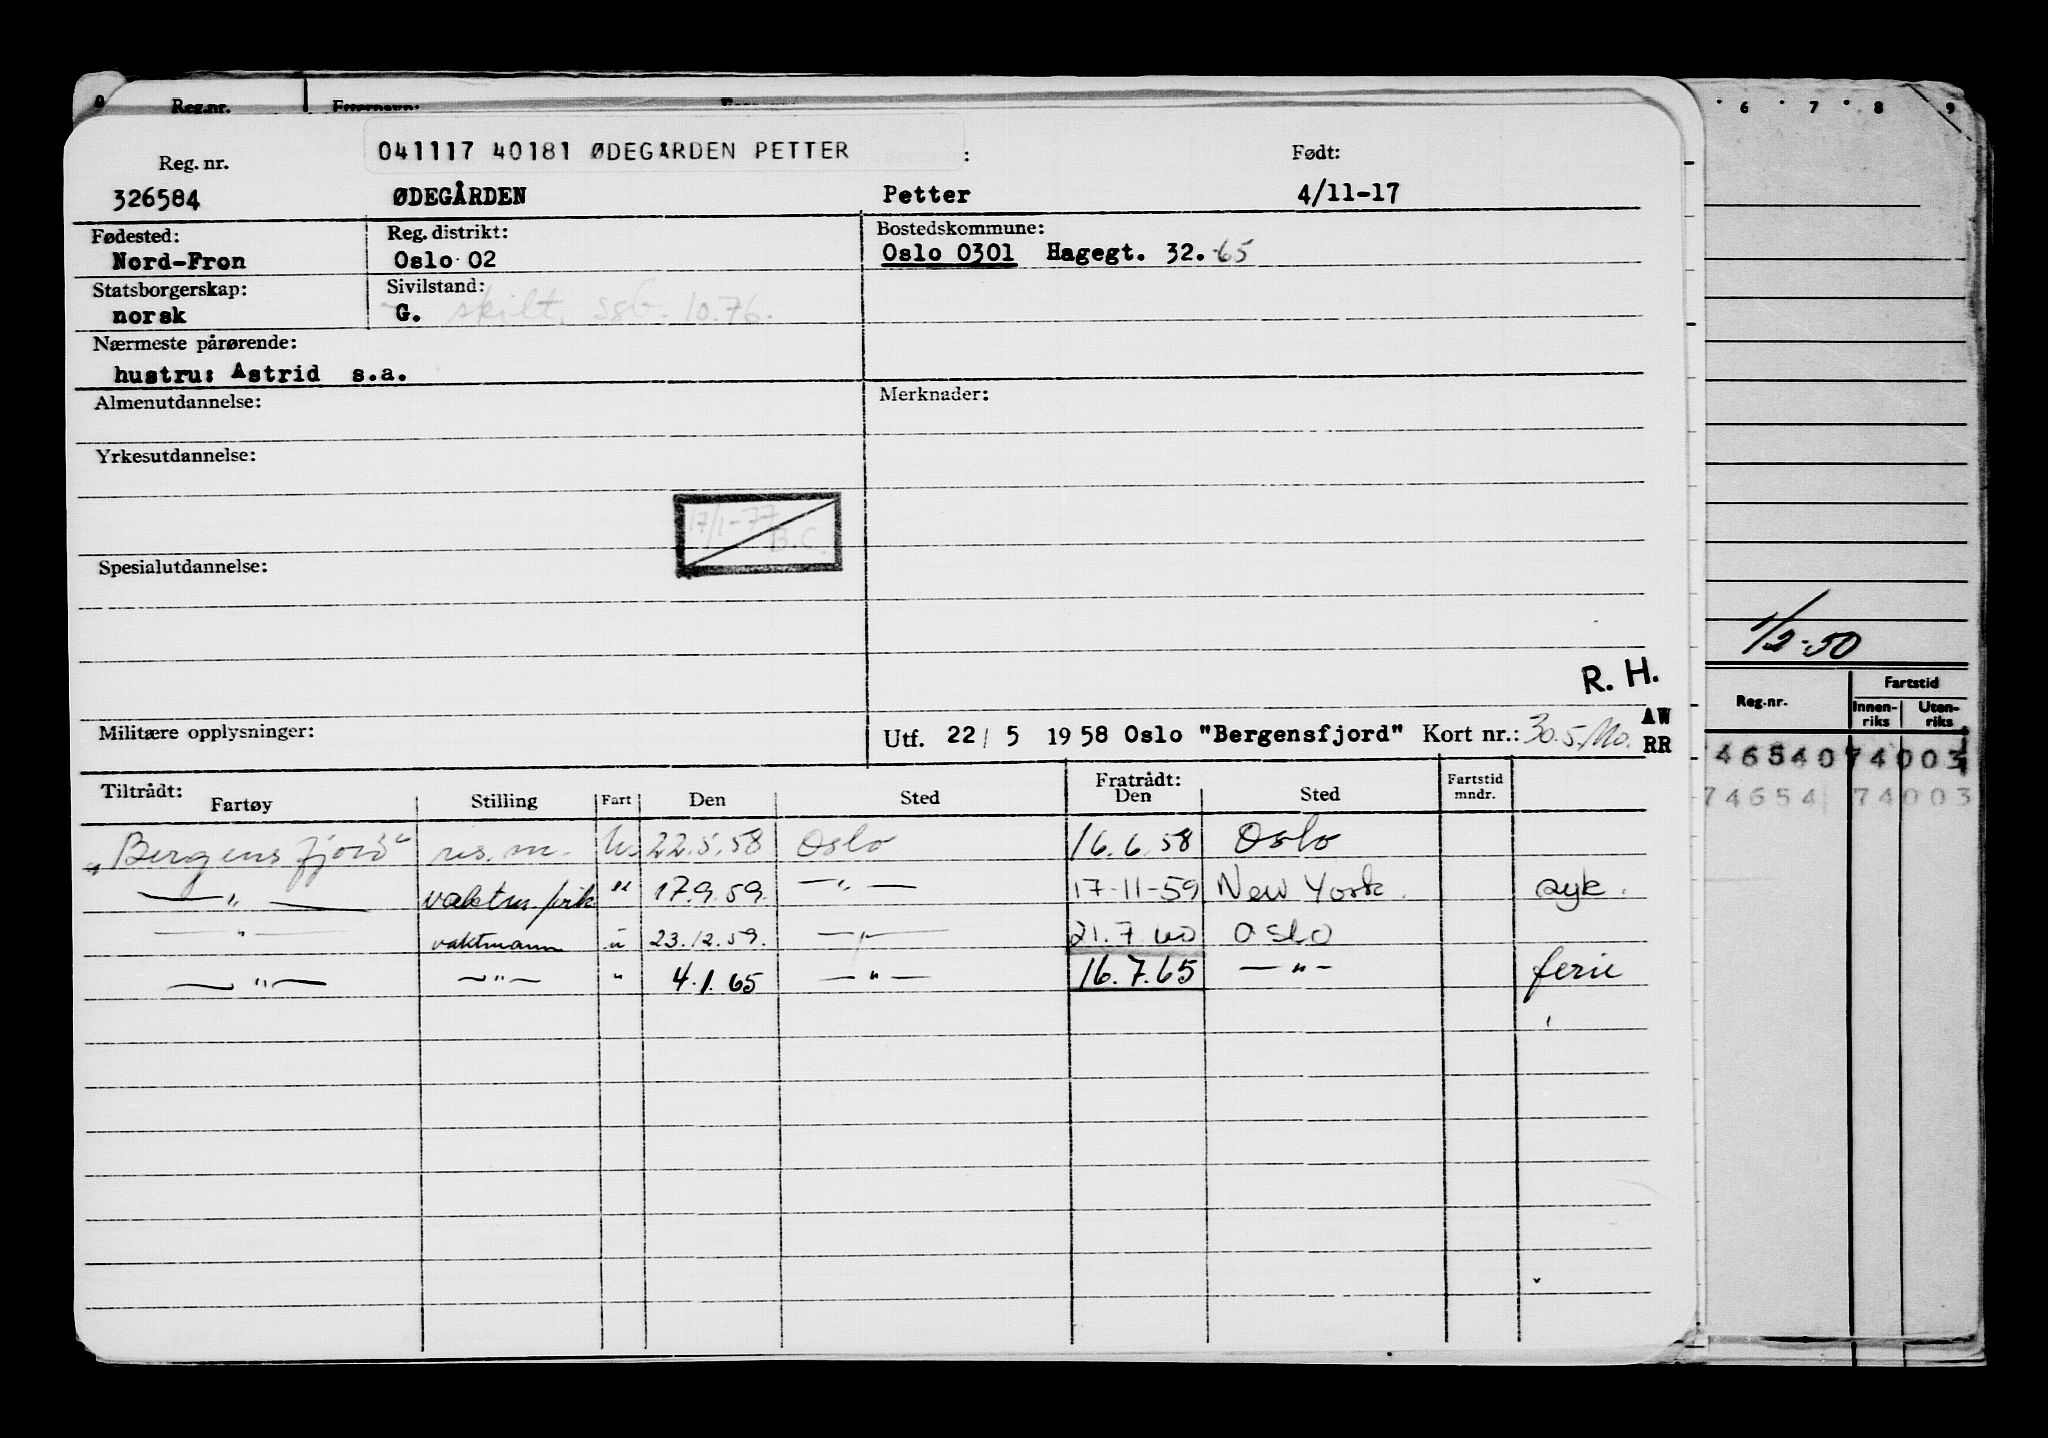 Reg.nr.
041117 40181 ØDEGÅRDEN PETTER
Reg. nr. : Født:
326584 ØDEGÅRDEN Petter 4/11-17
Fødested: Reg. distrikt: Bostedskommune:
Nord-Fron Oslo 02 Oslo 0301 Hagegt. 32. -65
Statsborgerskap: Sivilstand:
norsk G. skilt, ssb. 10.76.
Nærmeste pårørende:
hustru: Astrid s.a.
Almenutdannelse: Merknader:
Yrkesutdannelse:
17/1-77 B.C.
Spesialutdannelse:
R. H.
Militære opplysninger: Utf. 22/ 5 1958 Oslo "Bergensfjord" Kort nr.: AW
RR
Tiltrådt: Fratrådt:
Fartøy Stilling Fart Den Sted Den Sted Fartstid mndr.
"Bergensfjord" res. m. u. 22.5.58 Oslo 16.6.58 Oslo
—"— " 17.9.59. —"— 17-11-59 New York. syk.
—"— vaktmann u 23.12.59. —"— 21.7.60 Oslo
—"— —"— " 4.1.65 —"— 16.7.65 —"— ferie
6 7 8 9
1/2-50
Reg.nr. Fartstid
Innen-riks Uten-riks
4654074003
74654 74003